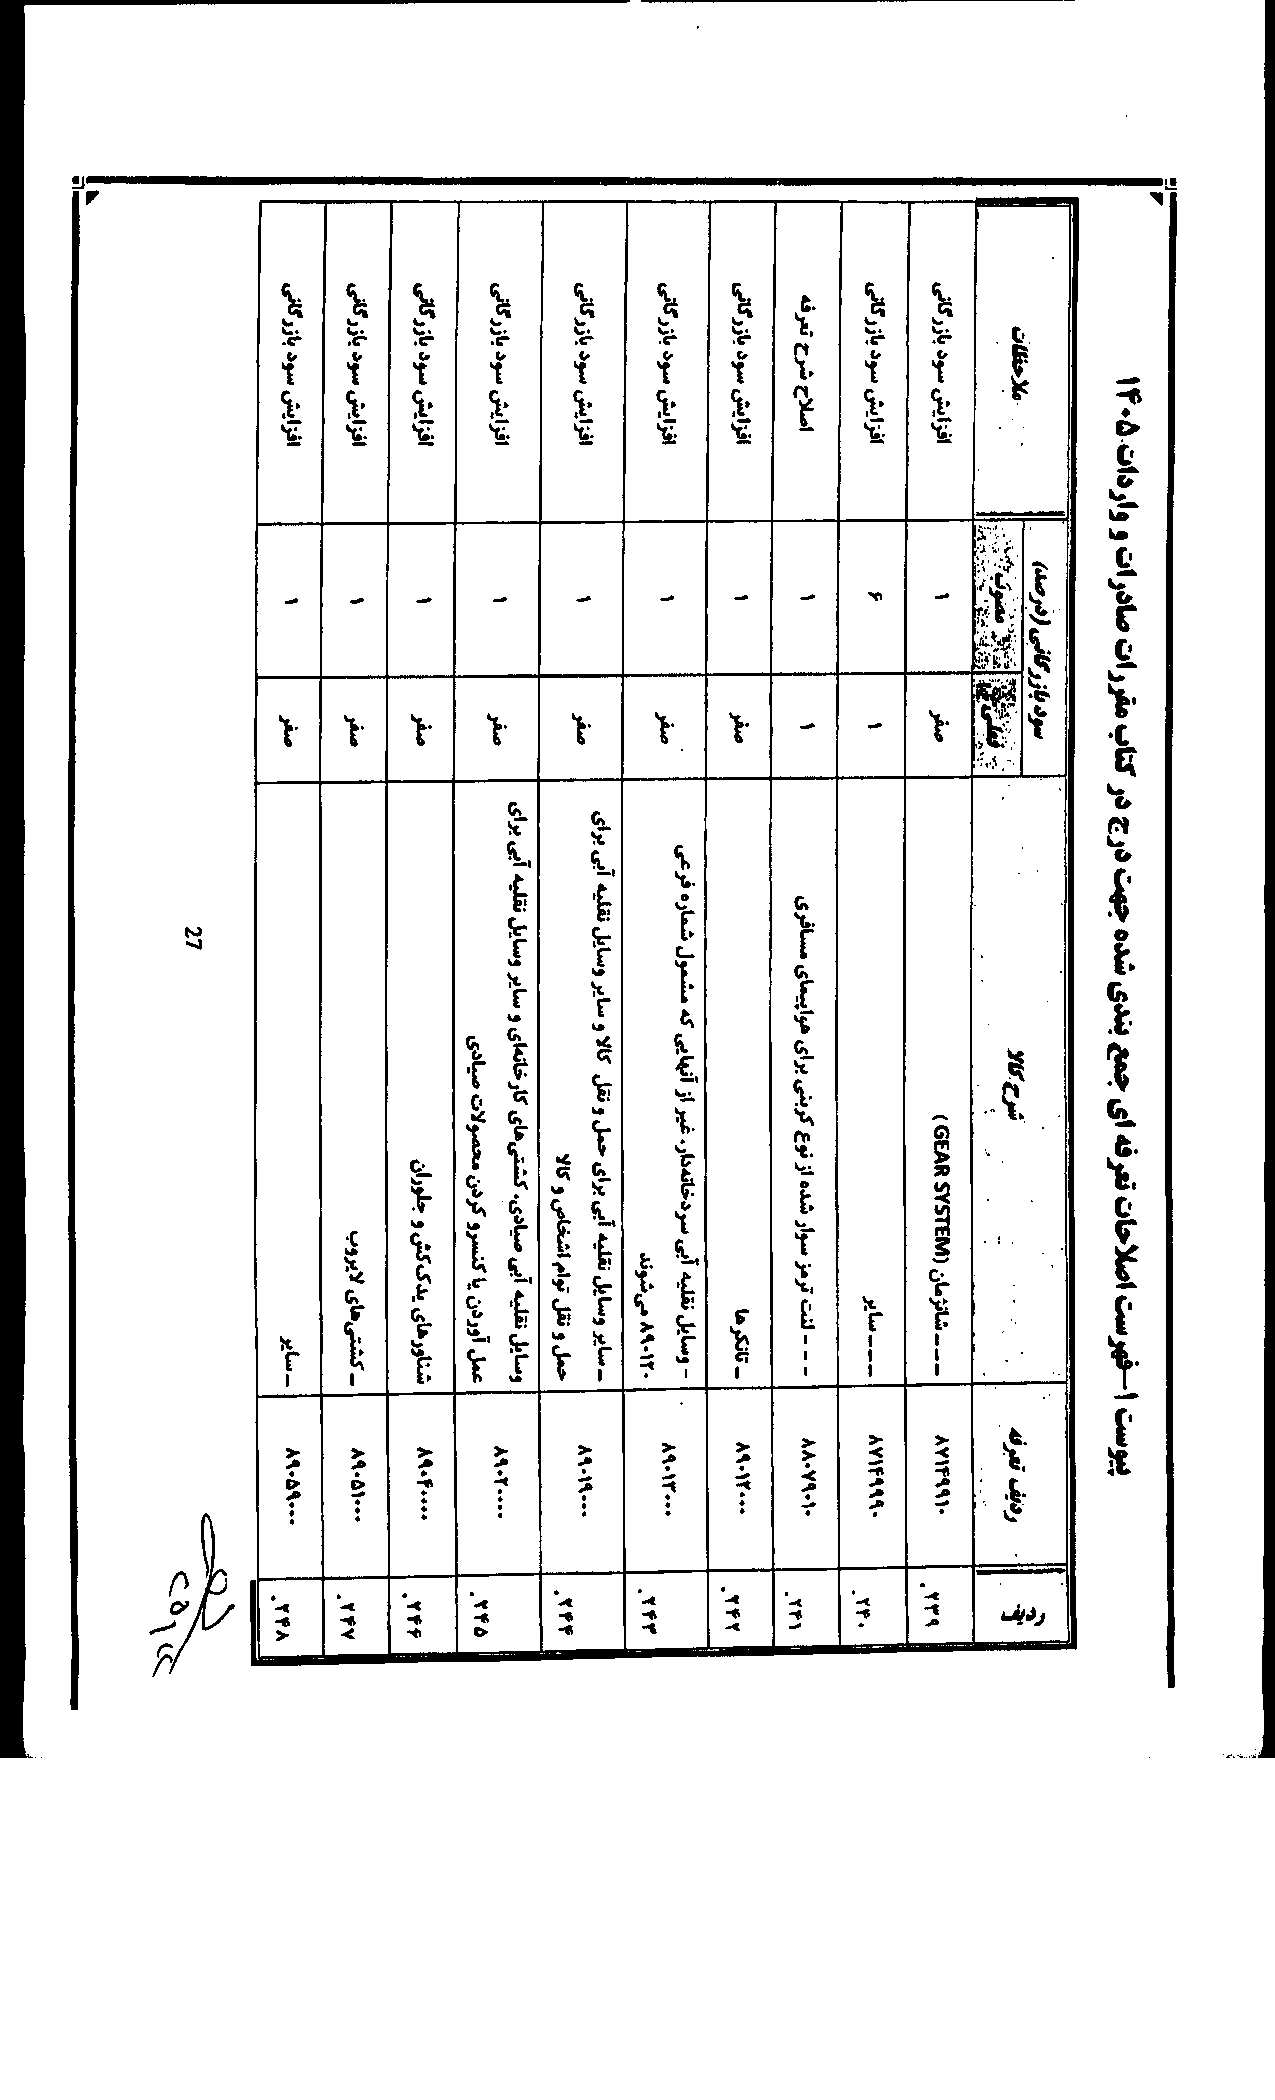 پیوست ۱-فهرست اصلاحات تعرفه ای جمع بندی شده جهت درج در کتاب مقررات صادرات و واردات ۱۴۰۵
ردیف ردیف تعرفه شرح کالا سود بازرگانی (درصد) ملاحظات
فعلی مصوب
۲۳۹. ۸۷۱۴۹۹۱۰ ---شانژمان (GEAR SYSTEM) صفر ۱ افزایش سود بازرگانی
۲۴۰. ۸۷۱۴۹۹۹۰ ---- سایر ۱ ۶ افزایش سود بازرگانی
۲۴۱. ۸۸۰۷۹۰۱۰ - - - لنت ترمز سوار شده از نوع کربنی برای هواپیمای مسافری ۱ ۱ اصلاح شرح تعرفه
۲۴۲. ۸۹۰۱۲۰۰۰ - تانکرها صفر ۱ افزایش سود بازرگانی
۲۴۳. ۸۹۰۱۳۰۰۰ - وسایل نقلیه آبی سردخانه‌دار، غیر از آنهایی که مشمول شماره فرعی صفر ۱ افزایش سود بازرگانی
۸۹۰۱۲۰ می‌شوند
۲۴۴. ۸۹۰۱۹۰۰۰ - سایر وسایل نقلیه آبی برای حمل و نقل کالا و سایر وسایل نقلیه آبی برای صفر ۱ افزایش سود بازرگانی
حمل و نقل توام اشخاص و کالا
۲۴۵. ۸۹۰۲۰۰۰۰ وسایل نقلیه آبی صیادی، کشتی‌های کارخانه‌ای و سایر وسایل نقلیه آبی برای صفر ۱ افزایش سود بازرگانی
عمل آوردن یا کنسرو کردن محصولات صیادی
۲۴۶. ۸۹۰۴۰۰۰۰ شناورهای یدک‌کش و جلوران صفر ۱ افزایش سود بازرگانی
۲۴۷. ۸۹۰۵۱۰۰۰ - کشتی‌های لایروب صفر ۱ افزایش سود بازرگانی
۲۴۸. ۸۹۰۵۹۰۰۰ - سایر صفر ۱ افزایش سود بازرگانی
27